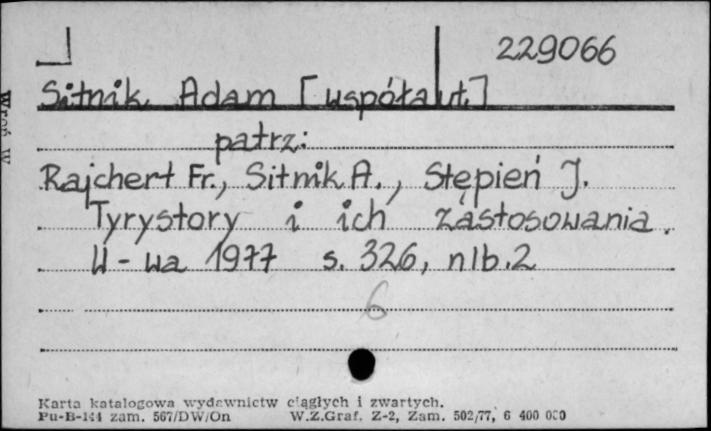 229066
Sitnik Adam [współaut.]
patrz:
Rajchert Fr., Sitnik A., Stępień J.
Tyrystory i ich zastosowania.
W-wa 1977 s. 326, nlb. 2
6
Karta katalogowa wydawnictw ciągłych i zwartych.
Pu-B-144 zam. 567/DW/On W.Z.Graf. Z-2, Zam. 502/77, 6 400 000